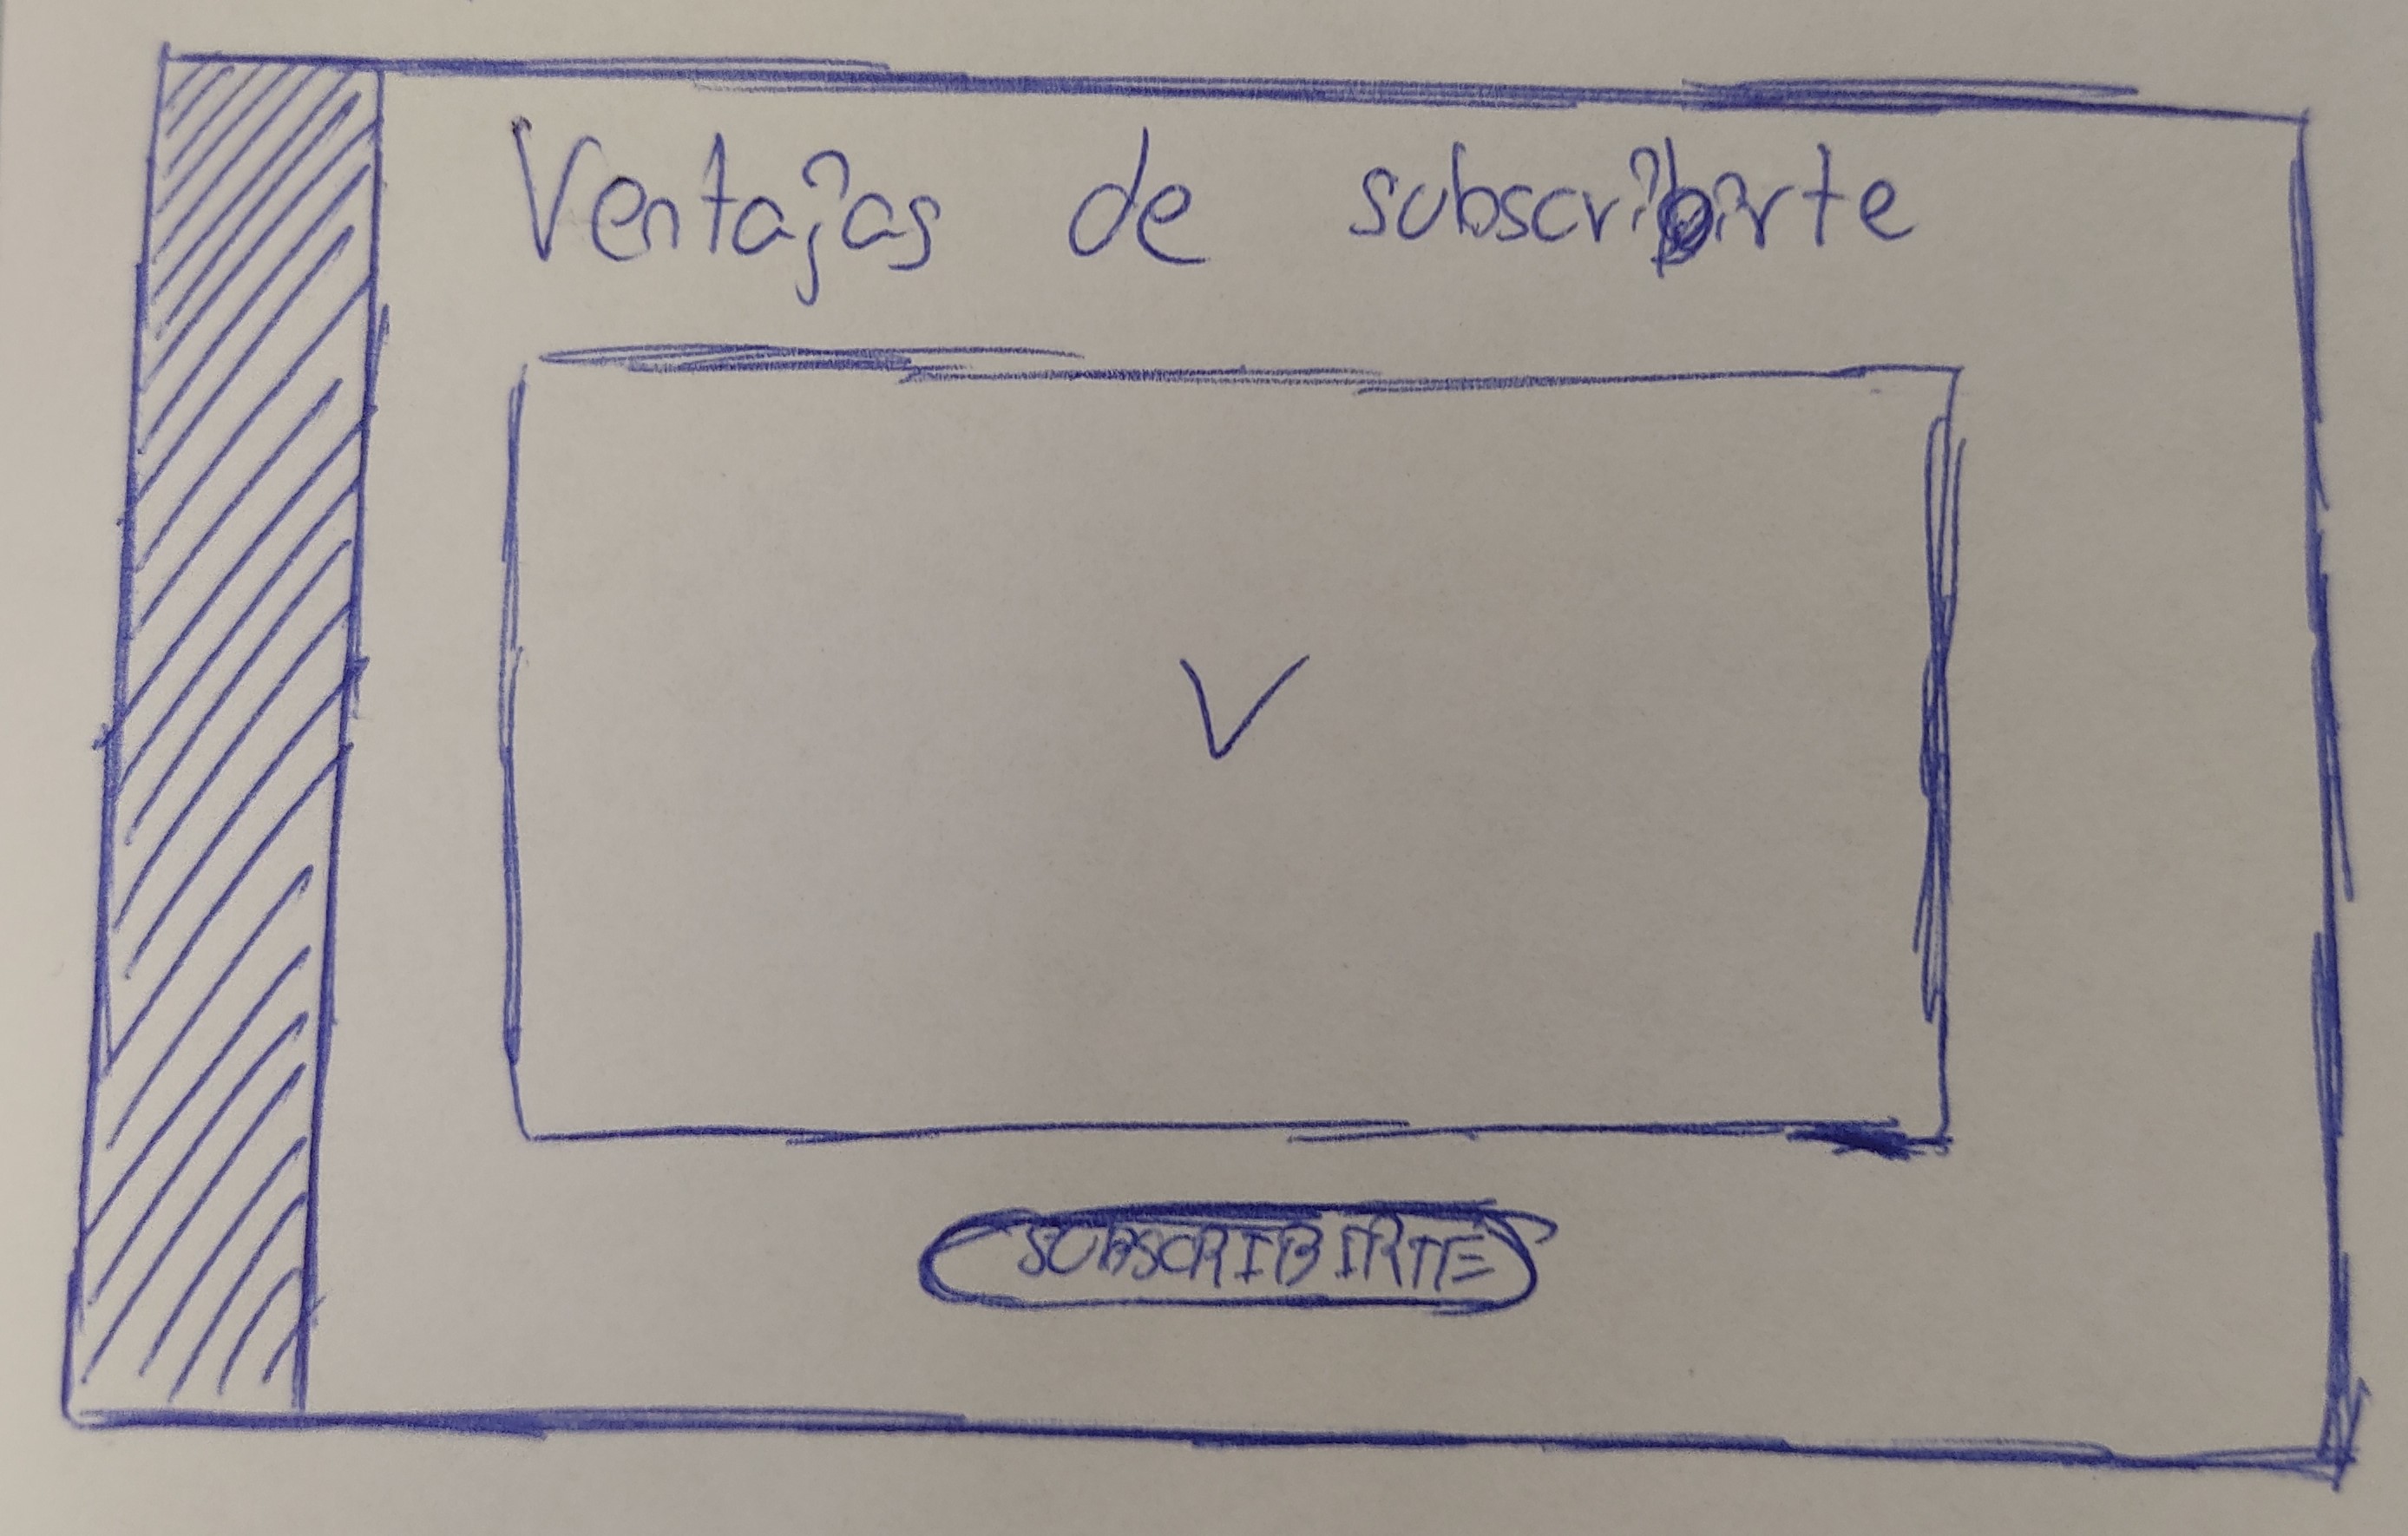 Ventajas de subscribirte
V
SUBSCRIBIRTE